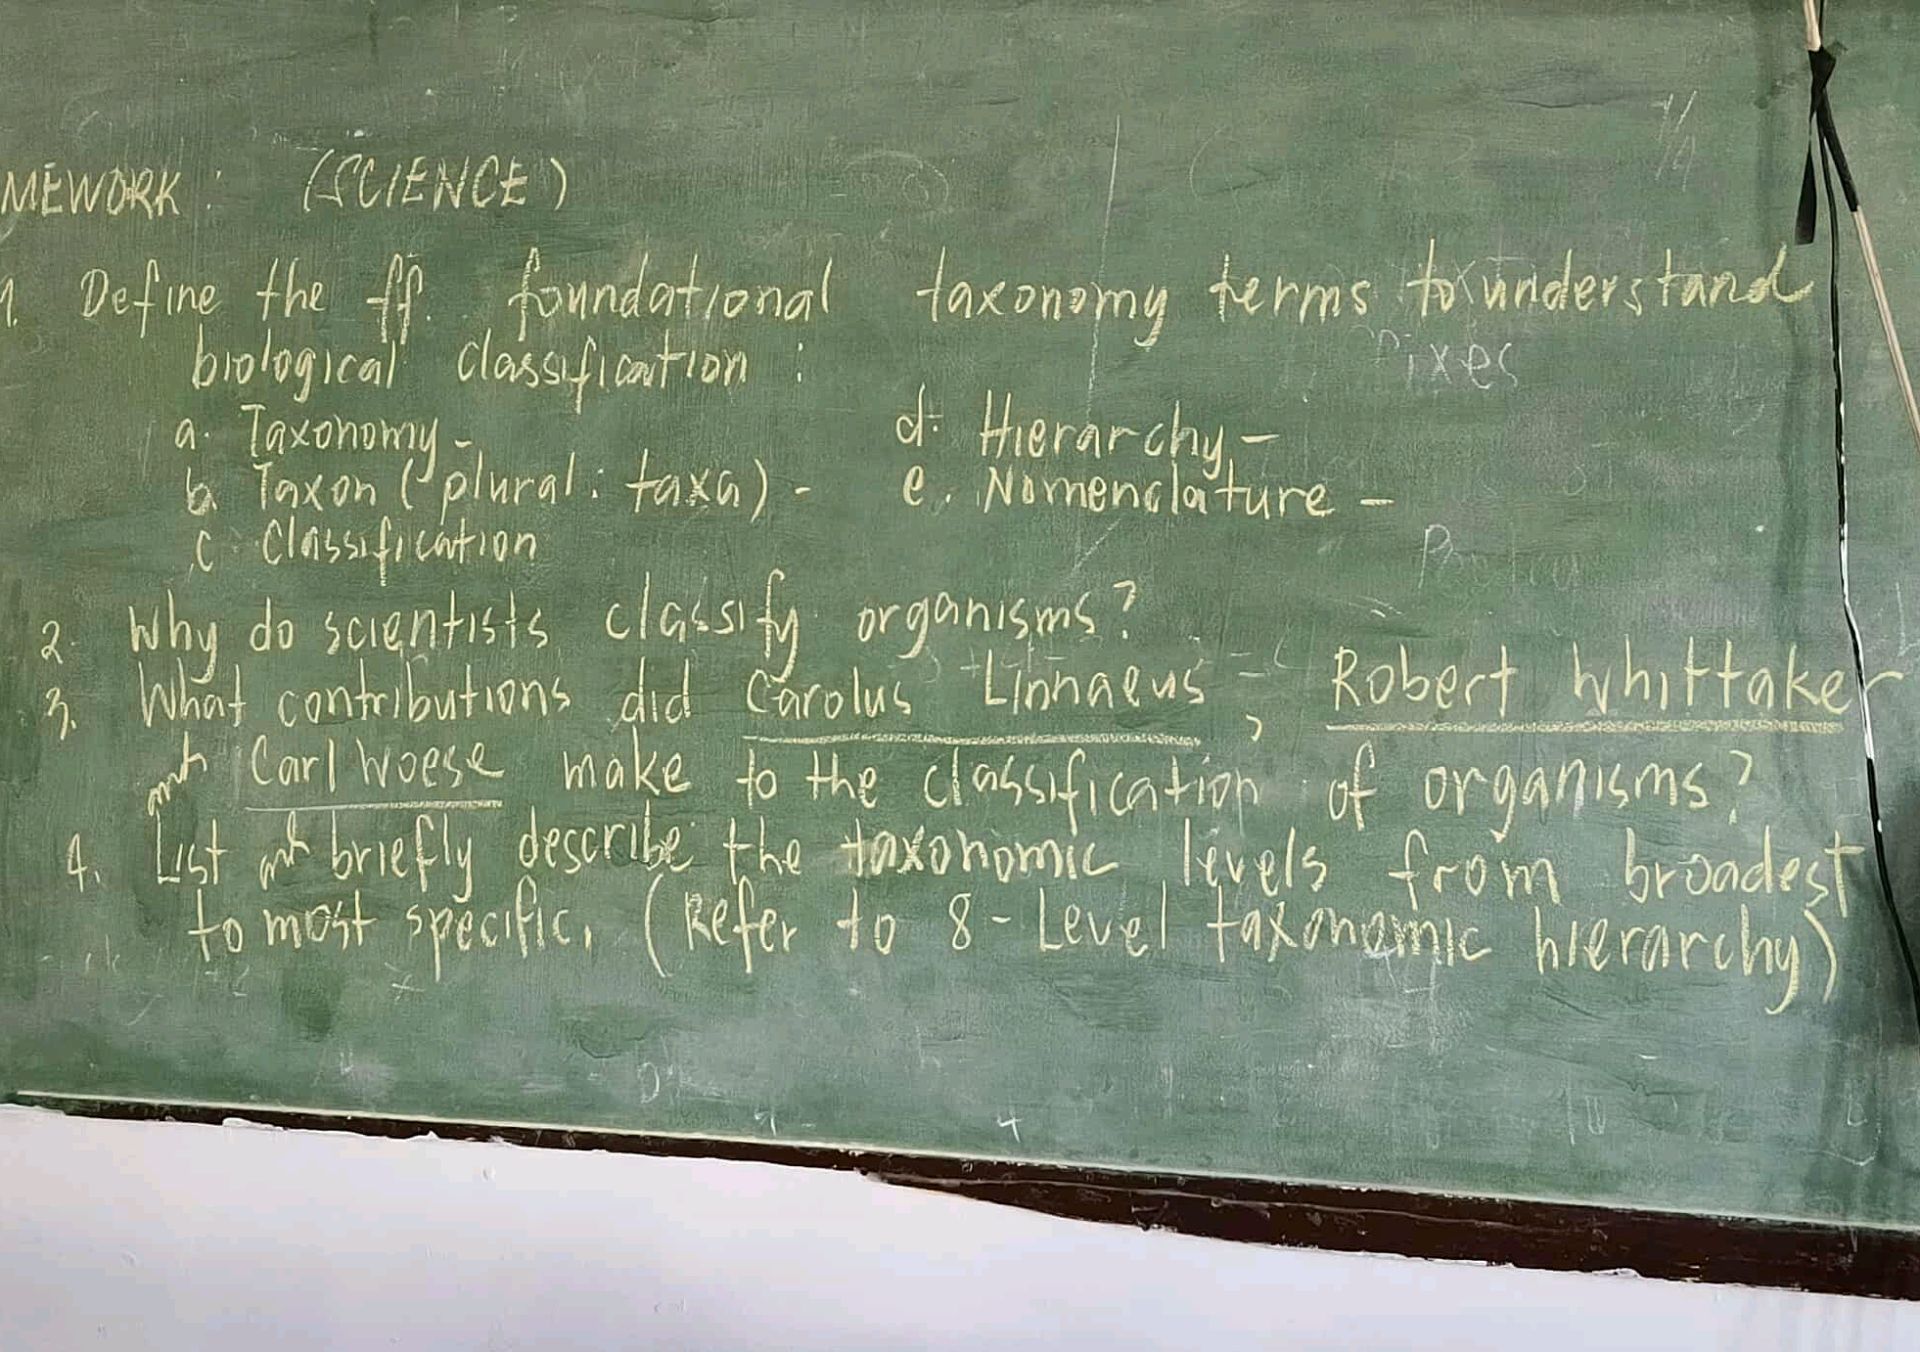 MEWORK : (SCIENCE)
1. Define the ff. foundational taxonomy terms to understand
biological classification :
a. Taxonomy - d. Hierarchy -
b. Taxon (plural: taxa) - e. Nomenclature -
c. Classification
2. Why do scientists classify organisms?
3. What contributions did Carolus Linnaeus, Robert Whittaker
and Carl Woese make to the classification of organisms?
4. List and briefly describe the taxonomic levels from broadest
to most specific. (Refer to 8-Level taxonomic hierarchy)